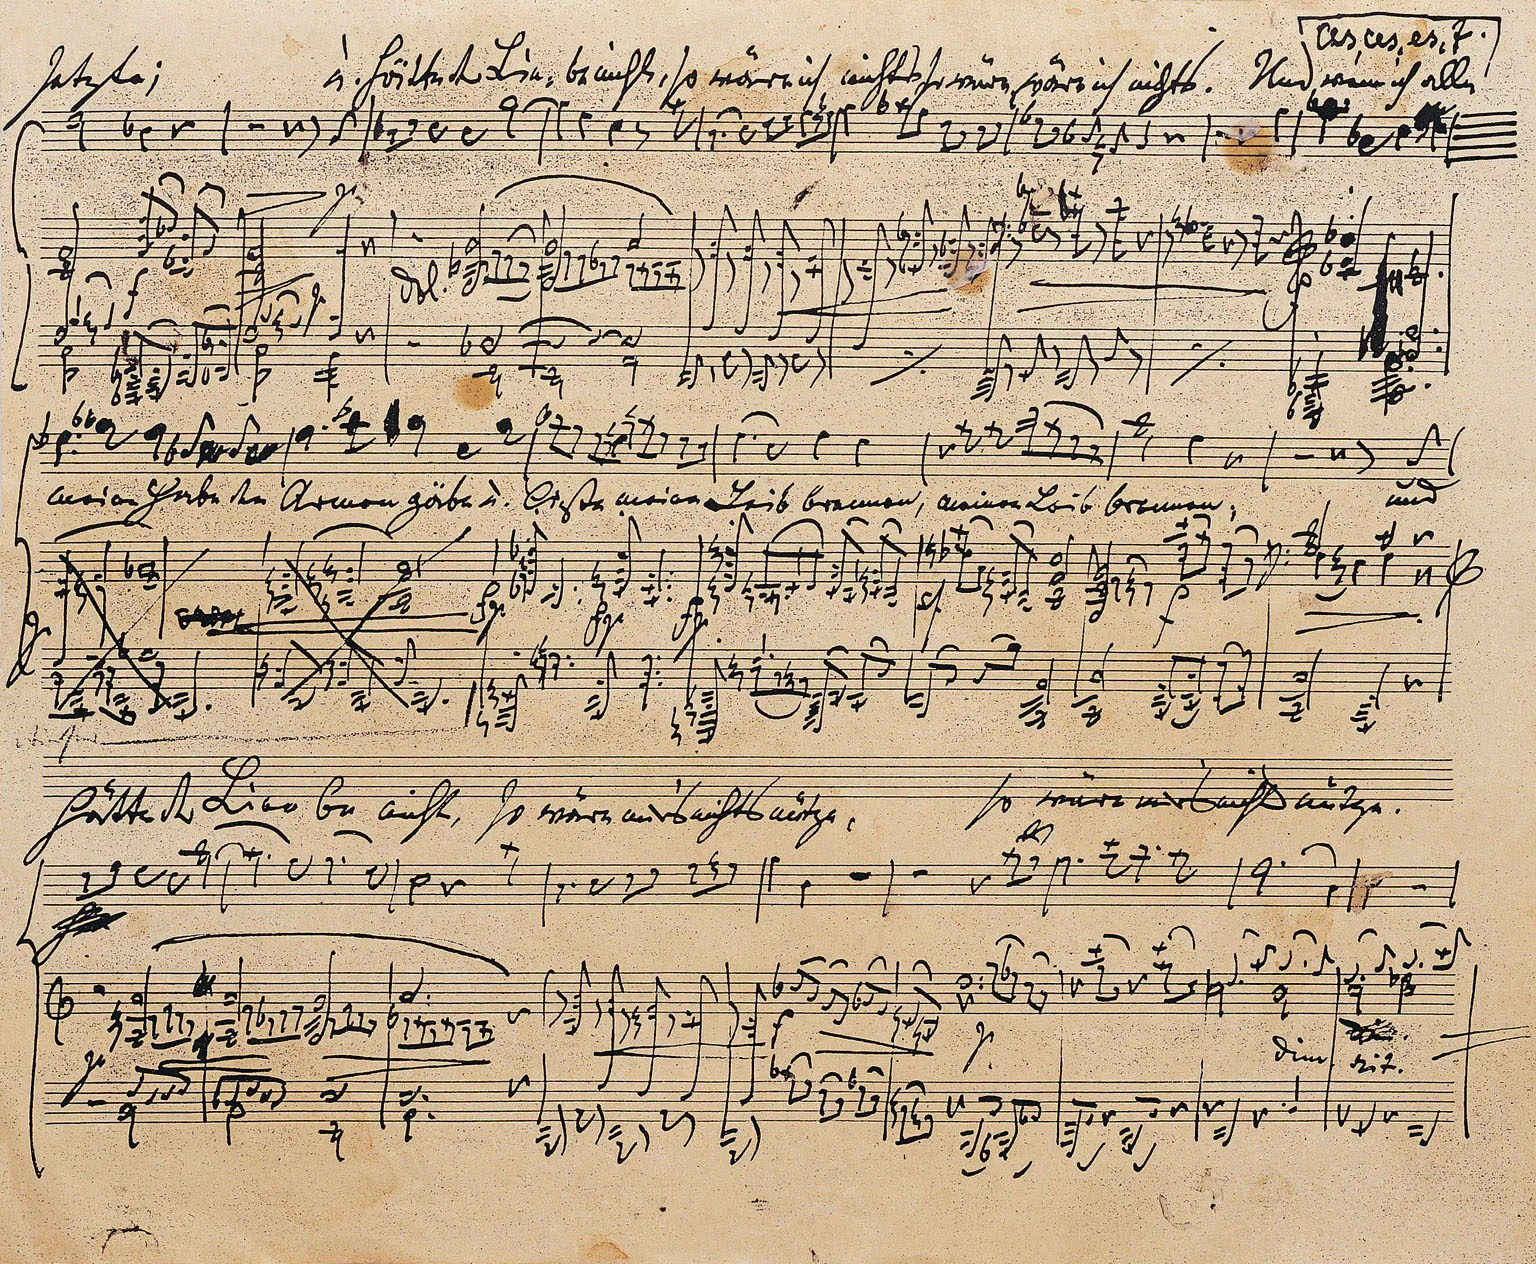 ces, ces, es, f.
versetzte; u. hätte der Liebe nicht, so wäre ich nichts, so wäre, wäre ich nichts. Und wenn ich alle
dol.
meine Habe den Armen gäbe u. ließe meinen Leib brennen, meinen Leib brennen; und
f fp fp fp sf f
hätte der Liebe nicht, so wäre mir's nichts nütze, so wäre mir's nicht nütze.
p f p
dim.
rit.